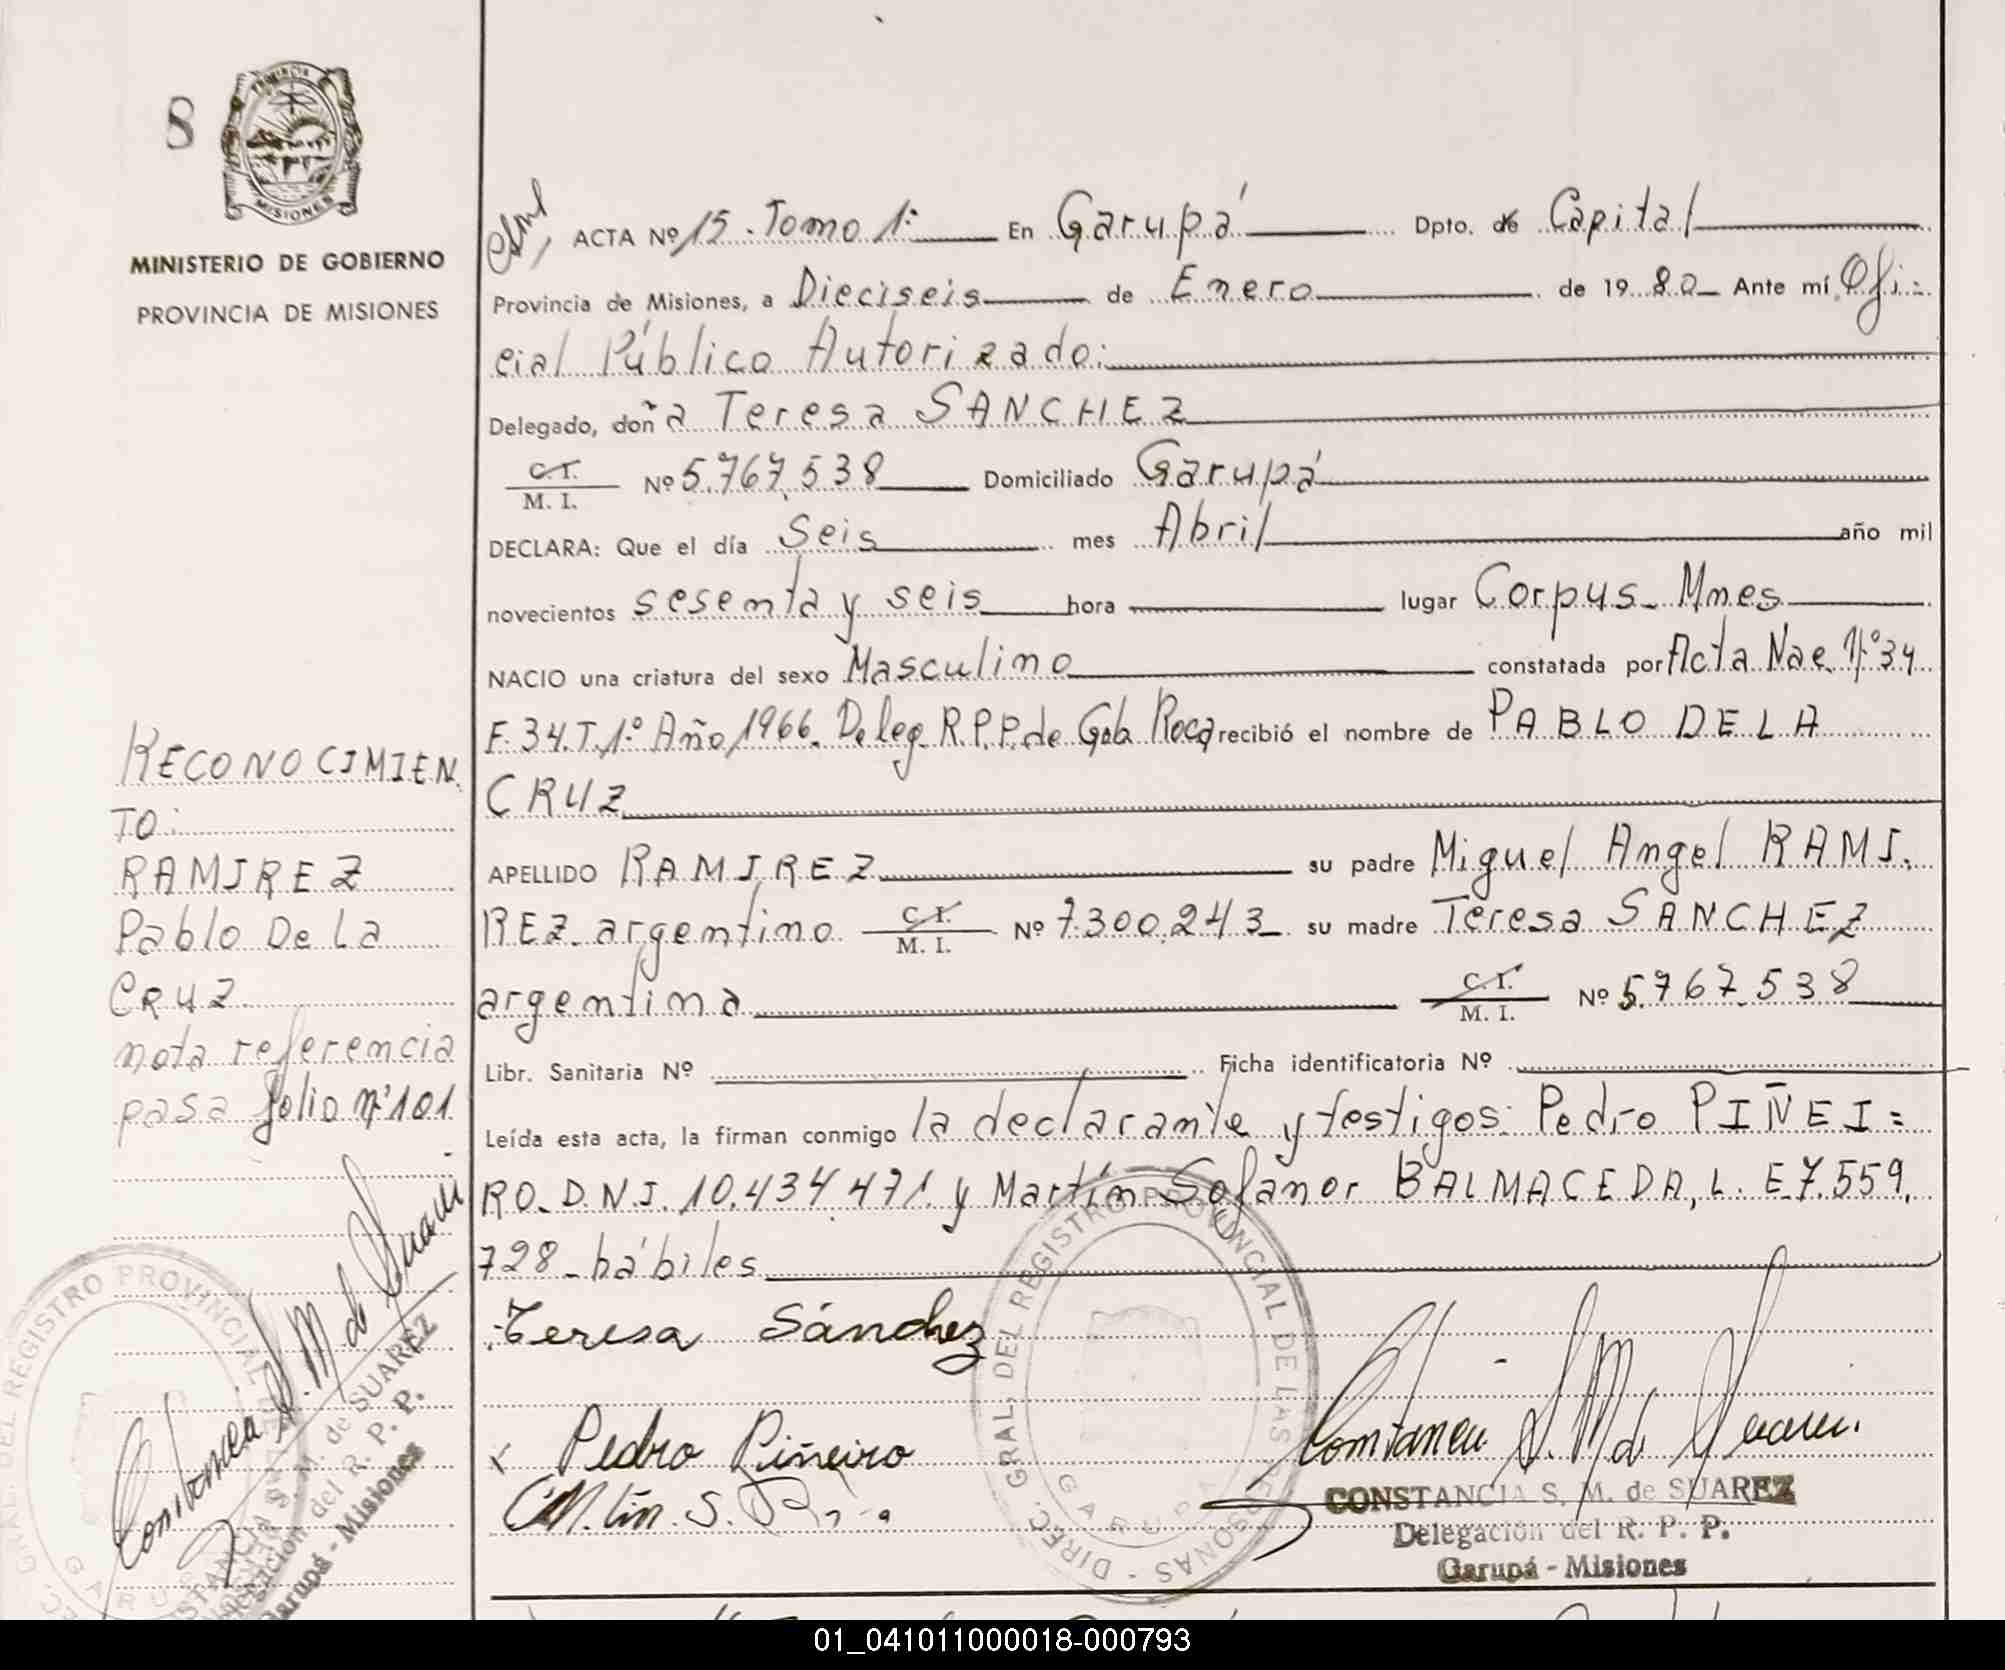 8
PROVINCIA
MISIONES
MINISTERIO DE GOBIERNO
PROVINCIA DE MISIONES
RECONOCIMIEN.
TO:
RAMIREZ
Pablo De La
CRUZ.
nota referencia
pasa folio nº 101
Constancia S. M. de Suarez
CONSTANCIA S. M. de SUAREZ
Delegación del R. P. P.
Garupá - Misiones
DIREC. GRAL. DEL REGISTRO PROVINCIAL DE LAS PERSONAS
GARUPA
ACTA Nº 15. Tomo 1º En Garupá Dpto. de Capital
Provincia de Misiones, a Dieciseis de Enero de 1980 Ante mí Ofi=
cial Público Autorizado:
Delegado, doña Teresa SANCHEZ
C. I.
M. I. Nº 5.767.538 Domiciliado Garupá
DECLARA: Que el día Seis mes Abril año mil
novecientos sesenta y seis hora lugar Corpus- Mnes
NACIO una criatura del sexo Masculino constatada por Acta Nac. Nº 34
F. 34. T. 1º Año 1966. Deleg. R.P.P. de Gob. Roca recibió el nombre de PABLO DE LA
CRUZ
APELLIDO RAMIREZ su padre Miguel Angel RAMI.
REZ- argentino C. I.
M. I. Nº 7.300.243 su madre Teresa SANCHEZ
argentina C. I.
M. I. Nº 5.767.538
Libr. Sanitaria Nº Ficha identificatoria Nº
Leída esta acta, la firman conmigo la declarante y testigos: Pedro PIÑEI=
RO- D.N.I. 10.434.471. y Martín Sofanor BALMACEDA, L. E 7.559.
728- hábiles
Teresa Sánchez
Pedro Piñeiro
Constancia S. M. de Suarez
DIREC. GRAL. DEL REGISTRO PROVINCIAL DE LAS PERSONAS
GARUPA
CONSTANCIA S. M. de SUAREZ
Delegación del R. P. P.
Garupá - Misiones
01_041011000018-000793